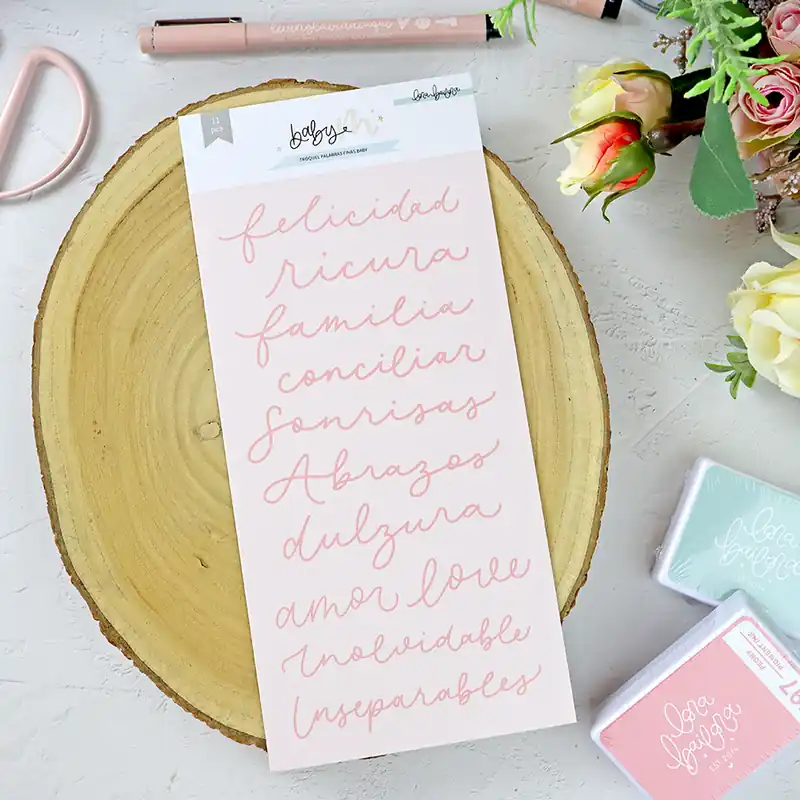 11
pcs
baby
lorabailora
TROQUEL PALABRAS FINAS BABY
felicidad
ricura
familia
conciliar
Sonrisas
Abrazos
dulzura
amor love
Inolvidable
Inseparables
lora
bailora
lora
bailora
EST. 2014
PEONY
PIGMENT INK